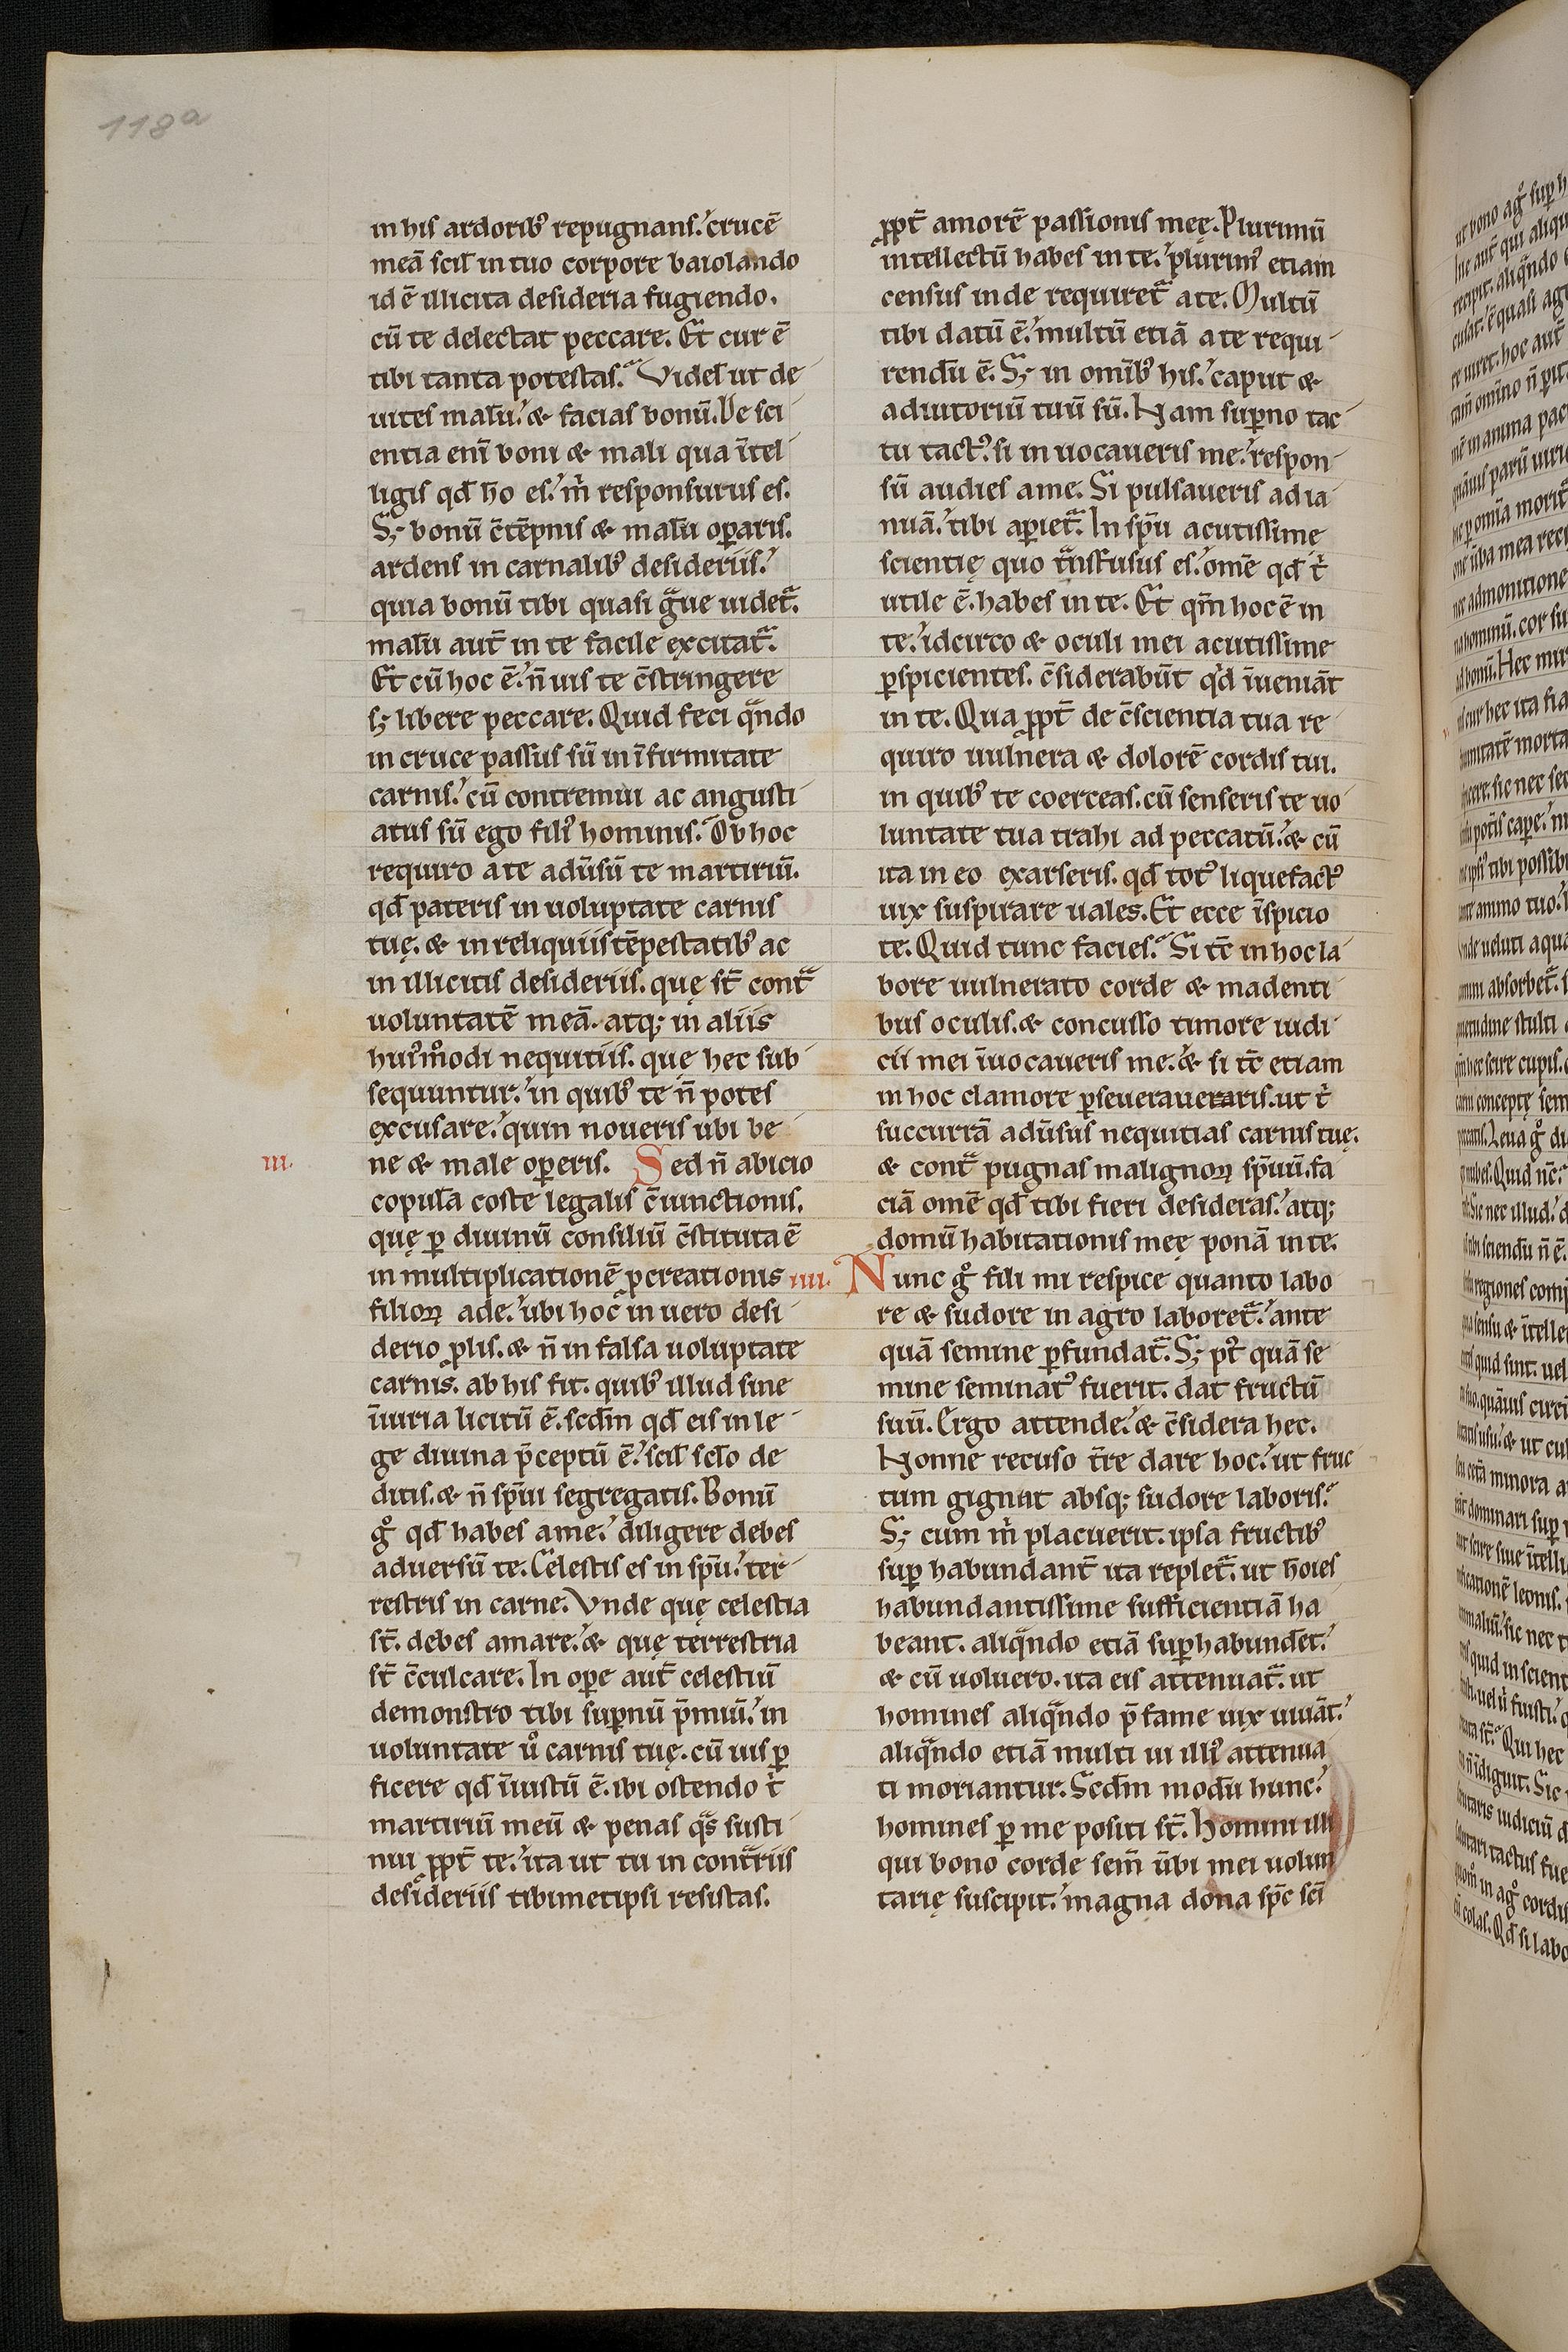 118a
in his ardorib᷒ repugnans. crucē
meā scil̄ in tuo corpore baiolando
id ē illicita desideria fugiendo.
cū te delectat peccare. Et cur ē
tibi tanta potestas. Videl̄ ut de
uites malū. & facias bonū. De sci
entia enī boni & mali qua ītel
ligis qđ hō es. m̄ responsurus es.
S; bonū c̄tēpnis & malū oꝑaris.
ardens in carnalib᷒ desideriis.
quia bonū tibi quasi gͣue uidetͬ.
malū aut̄ in te facile excitatͬ.
Et cū hoc ē. n̄ uis te c̄stringere
s; libere peccare. Quid feci qͣndo
in cruce passus sū in īfirmitate
carnis. cū contremui ac angusti
atus sū ego fili᷒ hominis. Ob hoc
requiro a te adūsū te martiriū.
qđ pateris in uoluptate carnis
tuę. & in reliquiis tēpestatib᷒ ac
in illicitis desideriis. quę st̄ contͣ
uoluntatē meā. atq; in aliis
hui᷒mͦodi nequitiis. quę hec sub
sequuntur. in quib᷒ te n̄ potes
excusare. quin noueris ubi be
iii. ne & male oꝑeris. Sed n̄ abicio
copulā coste legalis c̄iunctionis.
quę ꝑ diuinū consiliū c̄stituta ē
in multiplicationē ꝓcreationis
filioꝝ ade. ubi hoc in uero desi
derio ꝓlis. & n̄ in falsa uoluptate
carnis. ab his fit. quib᷒ illud sine
īiuria licitū ē. scđm qđ eis in le
ge diuina p̄ceptū ē. scil̄ sc̄lo de
ditis. & n̄ sp̄ui segregatis. Bonū
gͦ qđ habes a me. diligere debes
aduersū te. Celestis es in sp̄u. ter
restris in carne. Vnde quę celestia
st̄. debes amare. & quę terrestria
st̄ c̄culcare. In oꝑe aut̄ celestiū
demonstro tibi suꝑnū p̄miū. in
uoluntate uͦ carnis tuę. cū uis ꝑ
ficere qđ īiustū ē. ibi ostendo t͛
martiriū meū & penas qͣs susti
nui ꝓpt̄ te. ita ut tu in contͣriis
desideriis tibimetipsi resistas.
ꝓpt̄ amorē passionis meę. Plurimū
intellectū habes in te. plurim᷒ etiam
census inde requiretͬ a te. Multū
tibi datū ē. multū etiā a te requi
rendū ē. S; in om̄ib᷒ his. caput &
adiutoriū tuū sū. Nam suꝑno tac
tu tact᷒. si inuocaueris me. respon
sū audies a me. Si pulsaueris ad ia
nuā. tibi aꝑietͬ. In sp̄u acutissime
scientię quo tͣnsfusus es. omē qđ t͛
utile ē. habes in te. Et qm̄ hoc ē in
te. idcirco & oculi mei acutissime
ꝑspicientes. c̄siderabūt qͥd īueniāt
in te. Quaꝓpt̄ de c̄scientia tua re
quiro uulnera & dolorē cordis tui.
in quib᷒ te coerceas. cū senseris te uo
luntate tua trahi ad peccatū. & cū
ita in eo exarseris. qđ tot᷒ liquefact᷒
uix suspirare uales. Et ecce īspicio
te. Quid tunc facies. Si tc̄ in hoc la
bore uulnerato corde & madenti
bus oculis. & concusso timore iudi
cii mei īuocaueris me. & si tc̄ etiam
in hoc clamore ꝑseueraueraris. ut t͛
succurrā adūsus nequitias carnis tuę.
& contͣ pugnas malignoꝝ sp̄uū. fa
ciā omē qđ tibi fieri desideras. atq;
domū habitationis meę ponā in te.
iiii. Nunc gͦ fili mi respice quanto labo
re & sudore in agro laboretͬ. ante
quā semine ꝑfundatͬ. S; pt᷒ quā se
mine seminat᷒ fuerit. dat fructū
suū. Ergo attende. & c̄sidera hec.
Nonne recuso t̄re dare hoc. ut fruc
tum gignat absq; sudore laboris.
S; cum m͛ placuerit. ipsa fructib᷒
suꝑhabundant̄ ita repletͬ. ut hōies
habundantissime sufficientiā ha
beant. aliqͣndo etiā suꝑhabundet.
& cū uoluero. ita eis attenuatͬ. ut
homines aliqͣndo p̄ fame uix uiuāt.
aliqͣndo etiā multi ui illi᷒ attenua
ti moriantur. Scđm modū hunc.
homines ꝑ me positi st̄. Homini illi
qui bono corde sem̄ ūbi mei uolun
tarię suscipit. magna dona sp̄c sc̄i